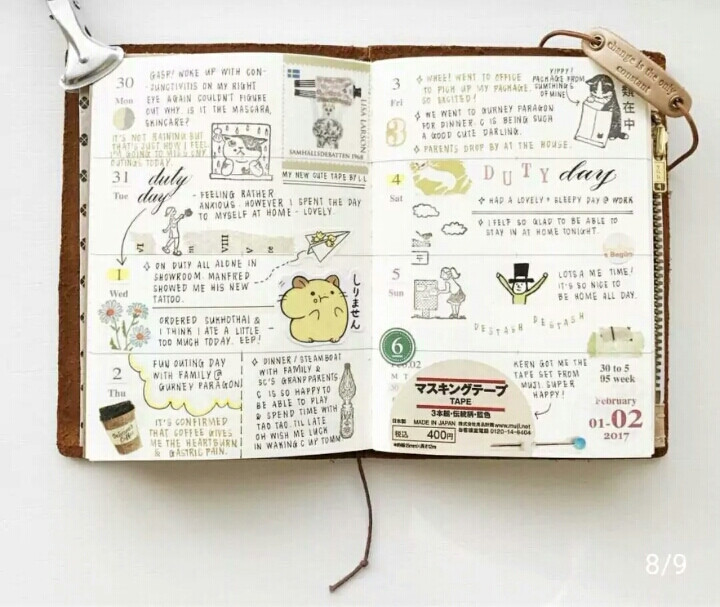 30
Mon
GASP! WOKE UP WITH CON-
JUNCTIVITIS ON MY RIGHT
EYE AGAIN COULDN'T FIGURE
OUT WHY. IS IT THE MASCARA,
SKINCARE?
IT'S NOT RAINING BUT
THAT'S JUST HOW I FEEL.
I'M GOING TO MISS MY
OUTINGS TODAY.
LISA LARSON
SAMHÄLLSDEBATTEN 1968
MY NEW CUTE TAPE BY LL
31
Tue
duty
day
- FEELING RATHER
ANXIOUS. HOWEVER I SPENT THE DAY
TO MYSELF AT HOME - LOVELY.
VIII
1
Wed
ON DUTY ALL ALONE IN
SHOWROOM. MANFRED
SHOWED ME HIS NEW
TATTOO.
ORDERED SUKHOTHAI &
I THINK I ATE A LITTLE
TOO MUCH TODAY. EEP!
しりません
2
Thu
FUN OUTING DAY
WITH FAMILY @
GURNEY PARAGON
IT'S CONFIRMED
THAT COFFEE GIVES
ME THE HEARTBURN
& GASTRIC PAIN.
DINNER/STEAMBOAT
WITH FAMILY &
SC'S GRANPPARENTS.
C IS SO HAPPY TO
BE ABLE TO PLAY
& SPEND TIME WITH
TAO TAO. TIL LATE
OH WISH ME LUCK
IN WAKING C UP TOMW
change is the only
constant
3
Fri
WHEE! WENT TO OFFICE
TO PICK UP MY PACKAGE.
SO EXCITED!
YIPPY!
PACKAGE FROM
SUMTHINGS
OF MINE!
在中
3
WE WENT TO GURNEY PARAGON
FOR DINNER. C IS BEING SUCH
A GOOD CUTE DARLING.
PARENTS DROP BY AT THE HOUSE.
4
Sat
DUTY day
HAD A LOVELY & SLEEPY DAY @ WORK
I FELT SO GLAD TO BE ABLE TO
STAY IN AT HOME TONIGHT.
Begin
5
Sun
LOTSA ME TIME!
IT'S SO NICE TO
BE HOME ALL DAY.
DESTASH DESTASH
6
Feb.02
M T
マスキングテープ
TAPE
3本組・伝統柄・藍色
日本製
MADE IN JAPAN
株式会社良品計画 http://www.muji.net
お客様室電話 0120-14-6404
税込 400円
KERN GOT ME THE
TAPE SET FROM
MUJI. SUPER
HAPPY!
30 to 5
05 week
February
01-02
2017
8/9